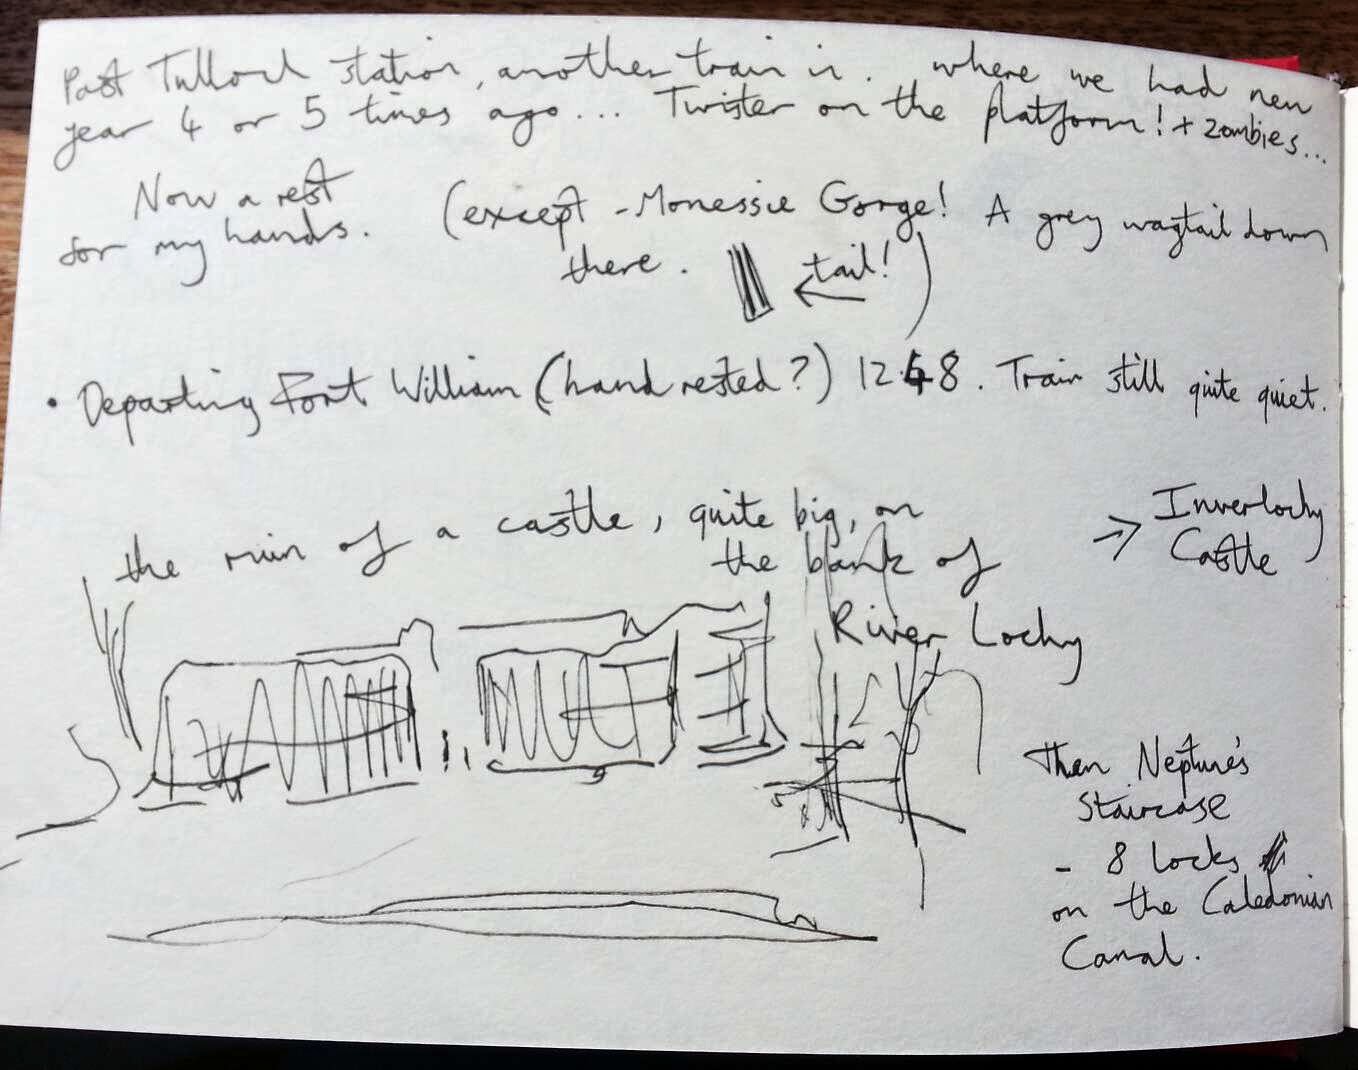 Past Tulloch station, another train in. where we had new
year 4 or 5 times ago... Twister on the platform! + zombies...
Now a rest
for my hands.
(except - Monessie Gorge! A grey wagtail down
there.
← tail! )
• Departing Fort William (hand rested?) 12.48. Train still quite quiet.
the ruin of a castle, quite big, on
the bank of
River Lochy
→ Inverlochy
Castle
Then Neptune's
Staircase
- 8 locks
on the Caledonian
Canal.